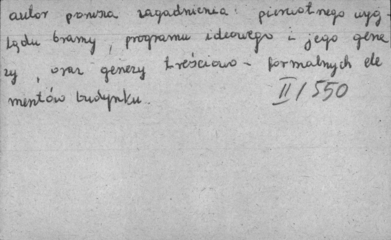 autor porusza zagadnienia: pierwotnego wyg
lądu bramy, programu ideowego i jego gene
zy, oraz genezy treściowo - formalnych ele
mentów budynku.
II/550